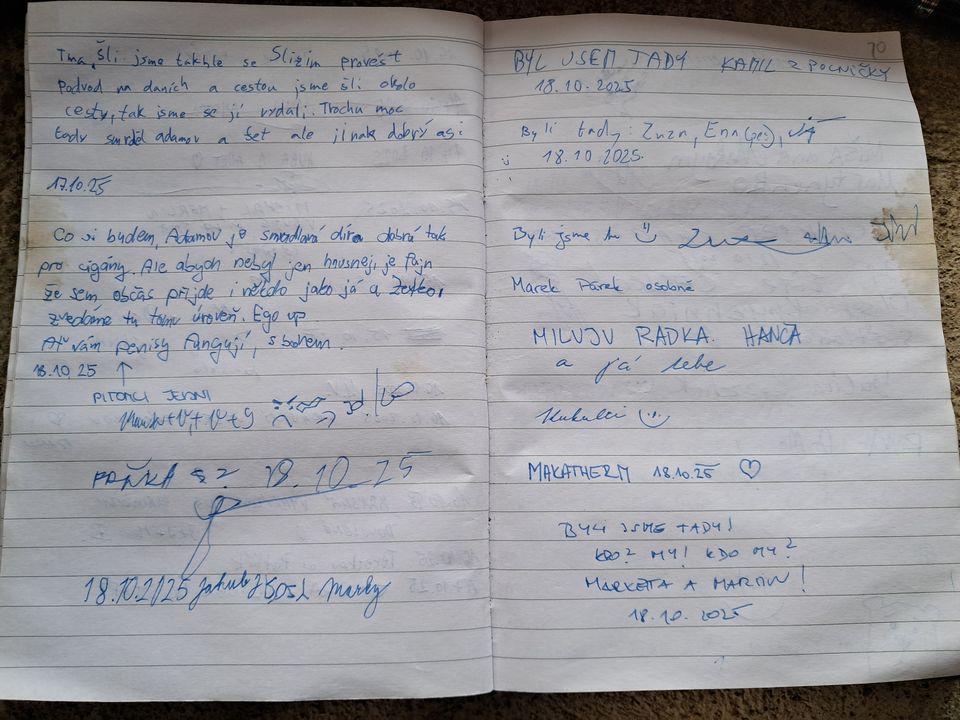 Tma, šli jsme takhle se Slizim provést
Podvod na daních a cestou jsme šli okolo
cesty, tak jsme se jí vydali. Trochu moc
tady smrděl adamov a šet ale jinak dobrý asi
17.10.25
Co si budem, Adamov je smradlavá díra dobrá tak
pro cigány. Ale abych nebyl jen hnusnej, je fajn
že sem občas přijde i někdo jako já a
zvedáme tu tomu úroveň. Ego up
Ať vám penisy fungují, s bohem.
18.10.25 ↑
PITOMCI JEDNI
18.10.25
18.10.2025 Jakub
70
BYL JSEM TADY KAMIL Z POLNIČKY
18.10.2025
Byli tady: Zuzn, Enn (pes), JÁ
:) 18.10.2025.
Byli jsme tu :)
Marek Párek osobně
MILUJU RADKA. HANCA
a já tebe
Kukučci :)
MAKATHERM 18.10.25 ♡
BYLI JSME TADY!
KDO? MY! KDO MY?
MARKETA A MARTIN!
18.10.2025